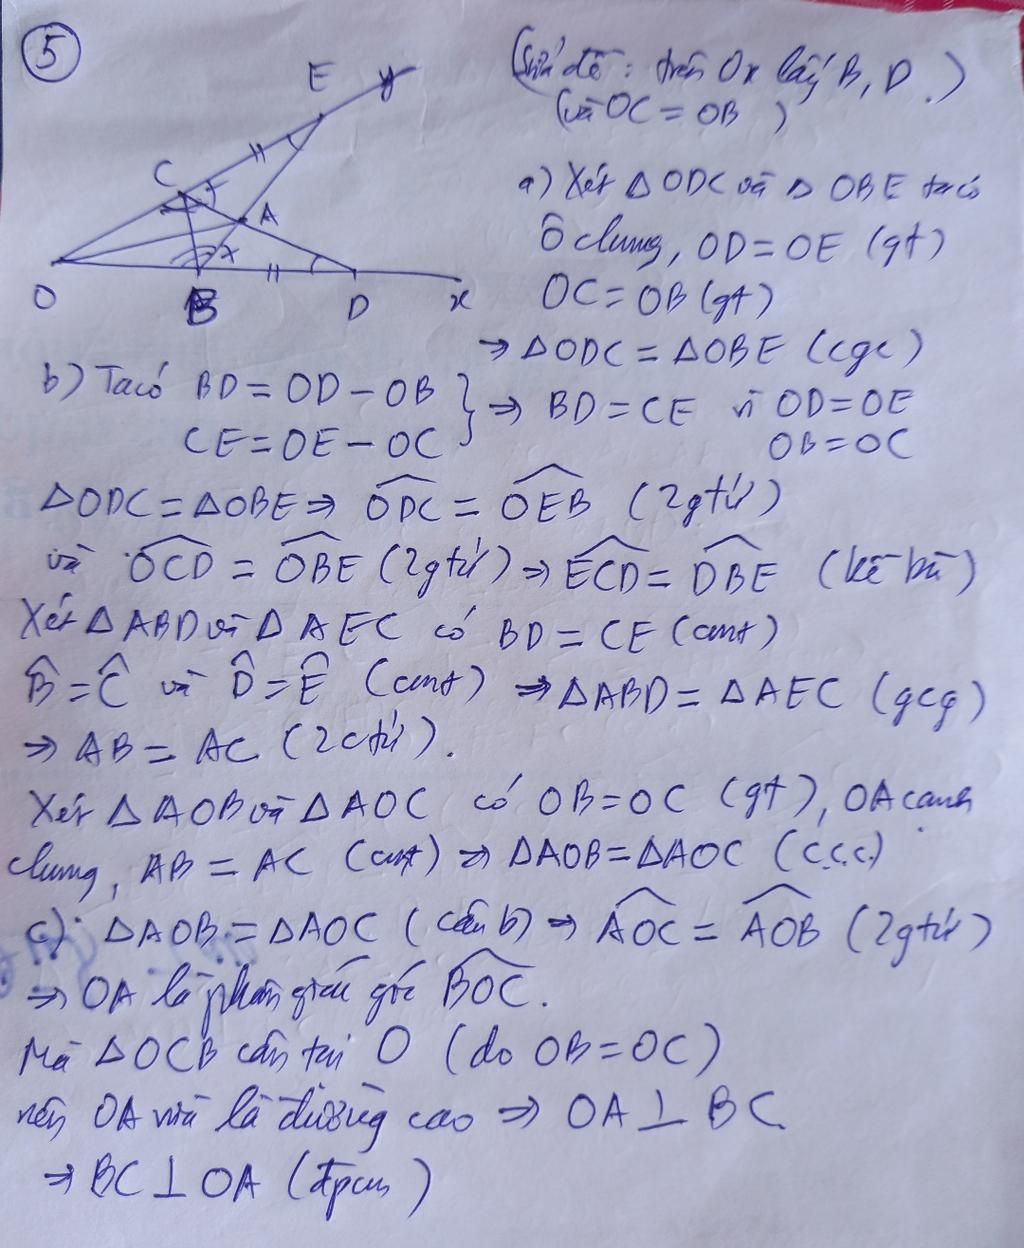 5
(Sửa đề: trên Ox lấy B, D.)
(và OC = OB)
E y
C
A
O B D x
a) Xét Δ ODC và Δ OBE ta có
Ô chung, OD = OE (gt)
OC = OB (gt)
⇒ ΔODC = ΔOBE (cgc)
b) Ta có BD = OD − OB } ⇒ BD = CE vì OD = OE
CE = OE − OC OB = OC
ΔODC = ΔOBE ⇒ \widehat{ODC} = \widehat{OEB} (2gtứ)
và \widehat{OCD} = \widehat{OBE} (2gtứ) ⇒ \widehat{ECD} = \widehat{DBE} (kề bù)
Xét Δ ABD và Δ AEC có BD = CE (cmt)
\widehat{B} = \widehat{C} và \widehat{D} = \widehat{E} (cmt) ⇒ ΔABD = ΔAEC (gcg)
⇒ AB = AC (2ctứ).
Xét Δ AOB và Δ AOC có OB = OC (gt), OA cạnh
chung, AB = AC (cmt) ⇒ ΔAOB = ΔAOC (c.c.c)
c) ΔAOB = ΔAOC (câu b) ⇒ \widehat{AOC} = \widehat{AOB} (2gtứ)
⇒ OA là phân giác góc \widehat{BOC}.
Mà ΔOCB cân tại O (do OB = OC)
nên OA là đường cao ⇒ OA ⊥ BC
⇒ BC ⊥ OA (đpcm)